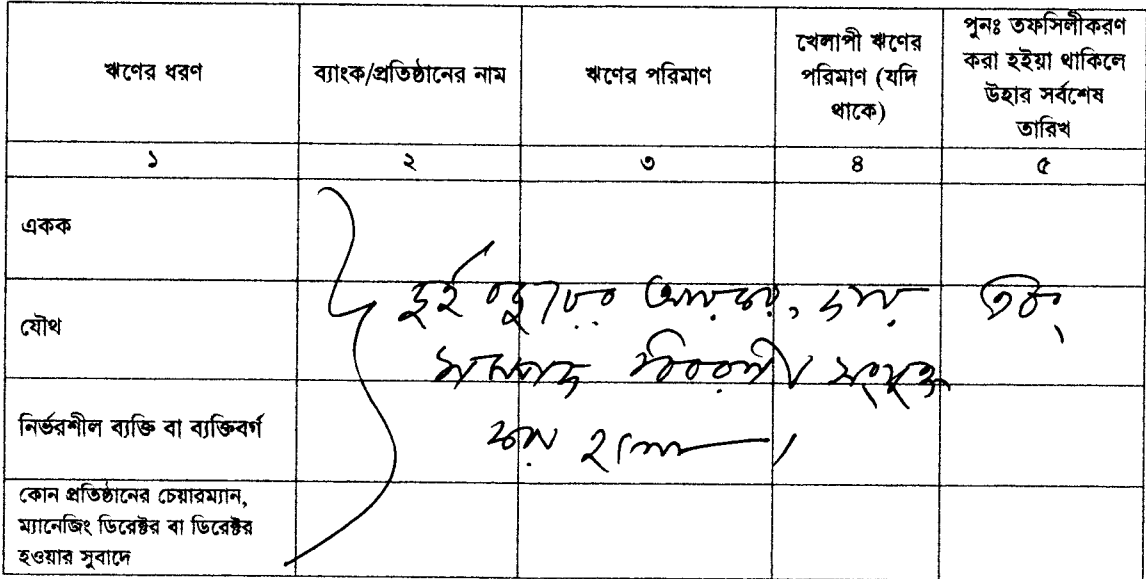 ঋণের ধরণ
ব্যাংক/প্রতিষ্ঠানের নাম
ঋণের পরিমাণ
খেলাপী ঋণের
পরিমাণ (যদি
থাকে)
পুনঃ তফসিলীকরণ
করা হইয়া থাকিলে
উহার সর্বশেষ
তারিখ
১
২
৩
৪
৫
একক
যৌথ
নির্ভরশীল ব্যক্তি বা ব্যক্তিবর্গ
কোন প্রতিষ্ঠানের চেয়ারম্যান,
ম্যানেজিং ডিরেক্টর বা ডিরেক্টর
হওয়ার সুবাদে
দুই বছরের আয়কর,
বিবরণী সংযুক্ত
করা হলো।